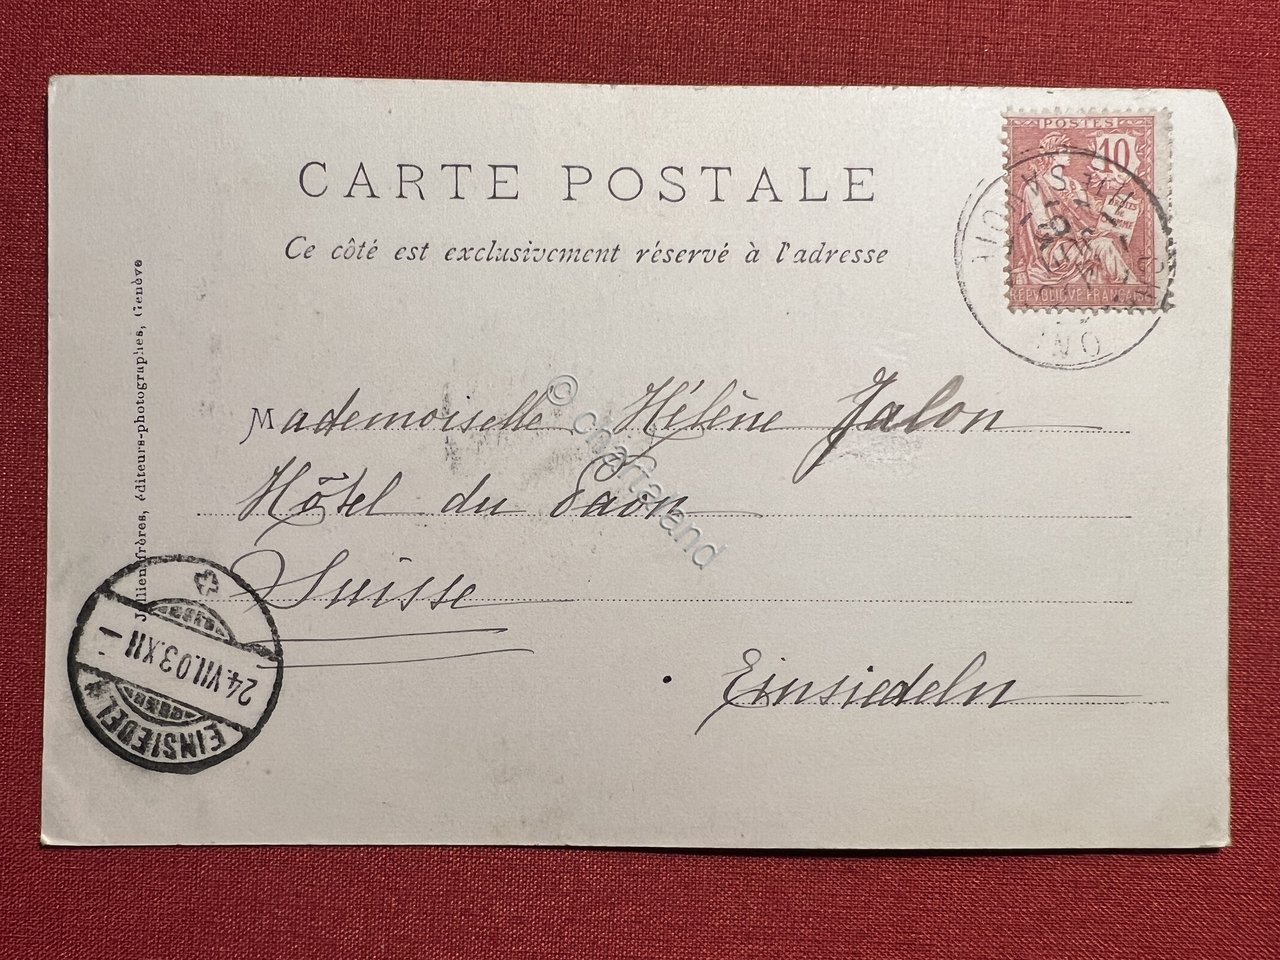 CARTE POSTALE
Ce côté est exclusivement réservé à l'adresse
POSTES
10
REPVBLIQVE FRANÇAISE
Mademoiselle Hélène Jalon
Hôtel du Paon
Suisse
Einsiedeln
Jullien frères, éditeurs-photographes, Genève
EINSIEDELN
24.VII.03.XII
© chartaland